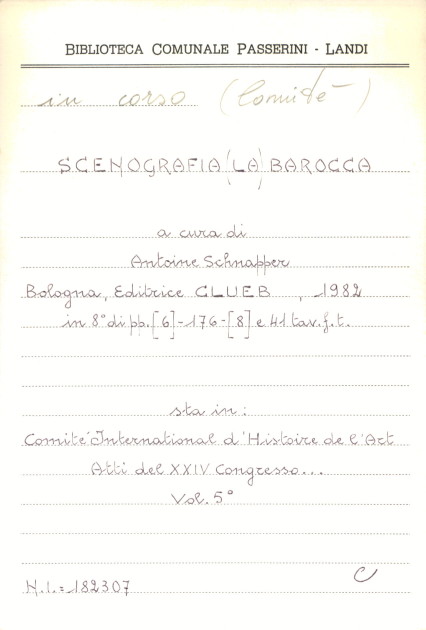 BIBLIOTECA COMUNALE PASSERINI - LANDI
in corso (Comité)
SCENOGRAFIA (LA) BAROCCA
a cura di
Antoine Schnapper
Bologna, Editrice CLUEB, 1982
in 8° di pp. [6]-176-[8] e 41 tav. f. t.
sta in:
Comité International d'Histoire de l'Art
Atti del XXIV Congresso...
Vol. 5°
C
N.I. = 182307